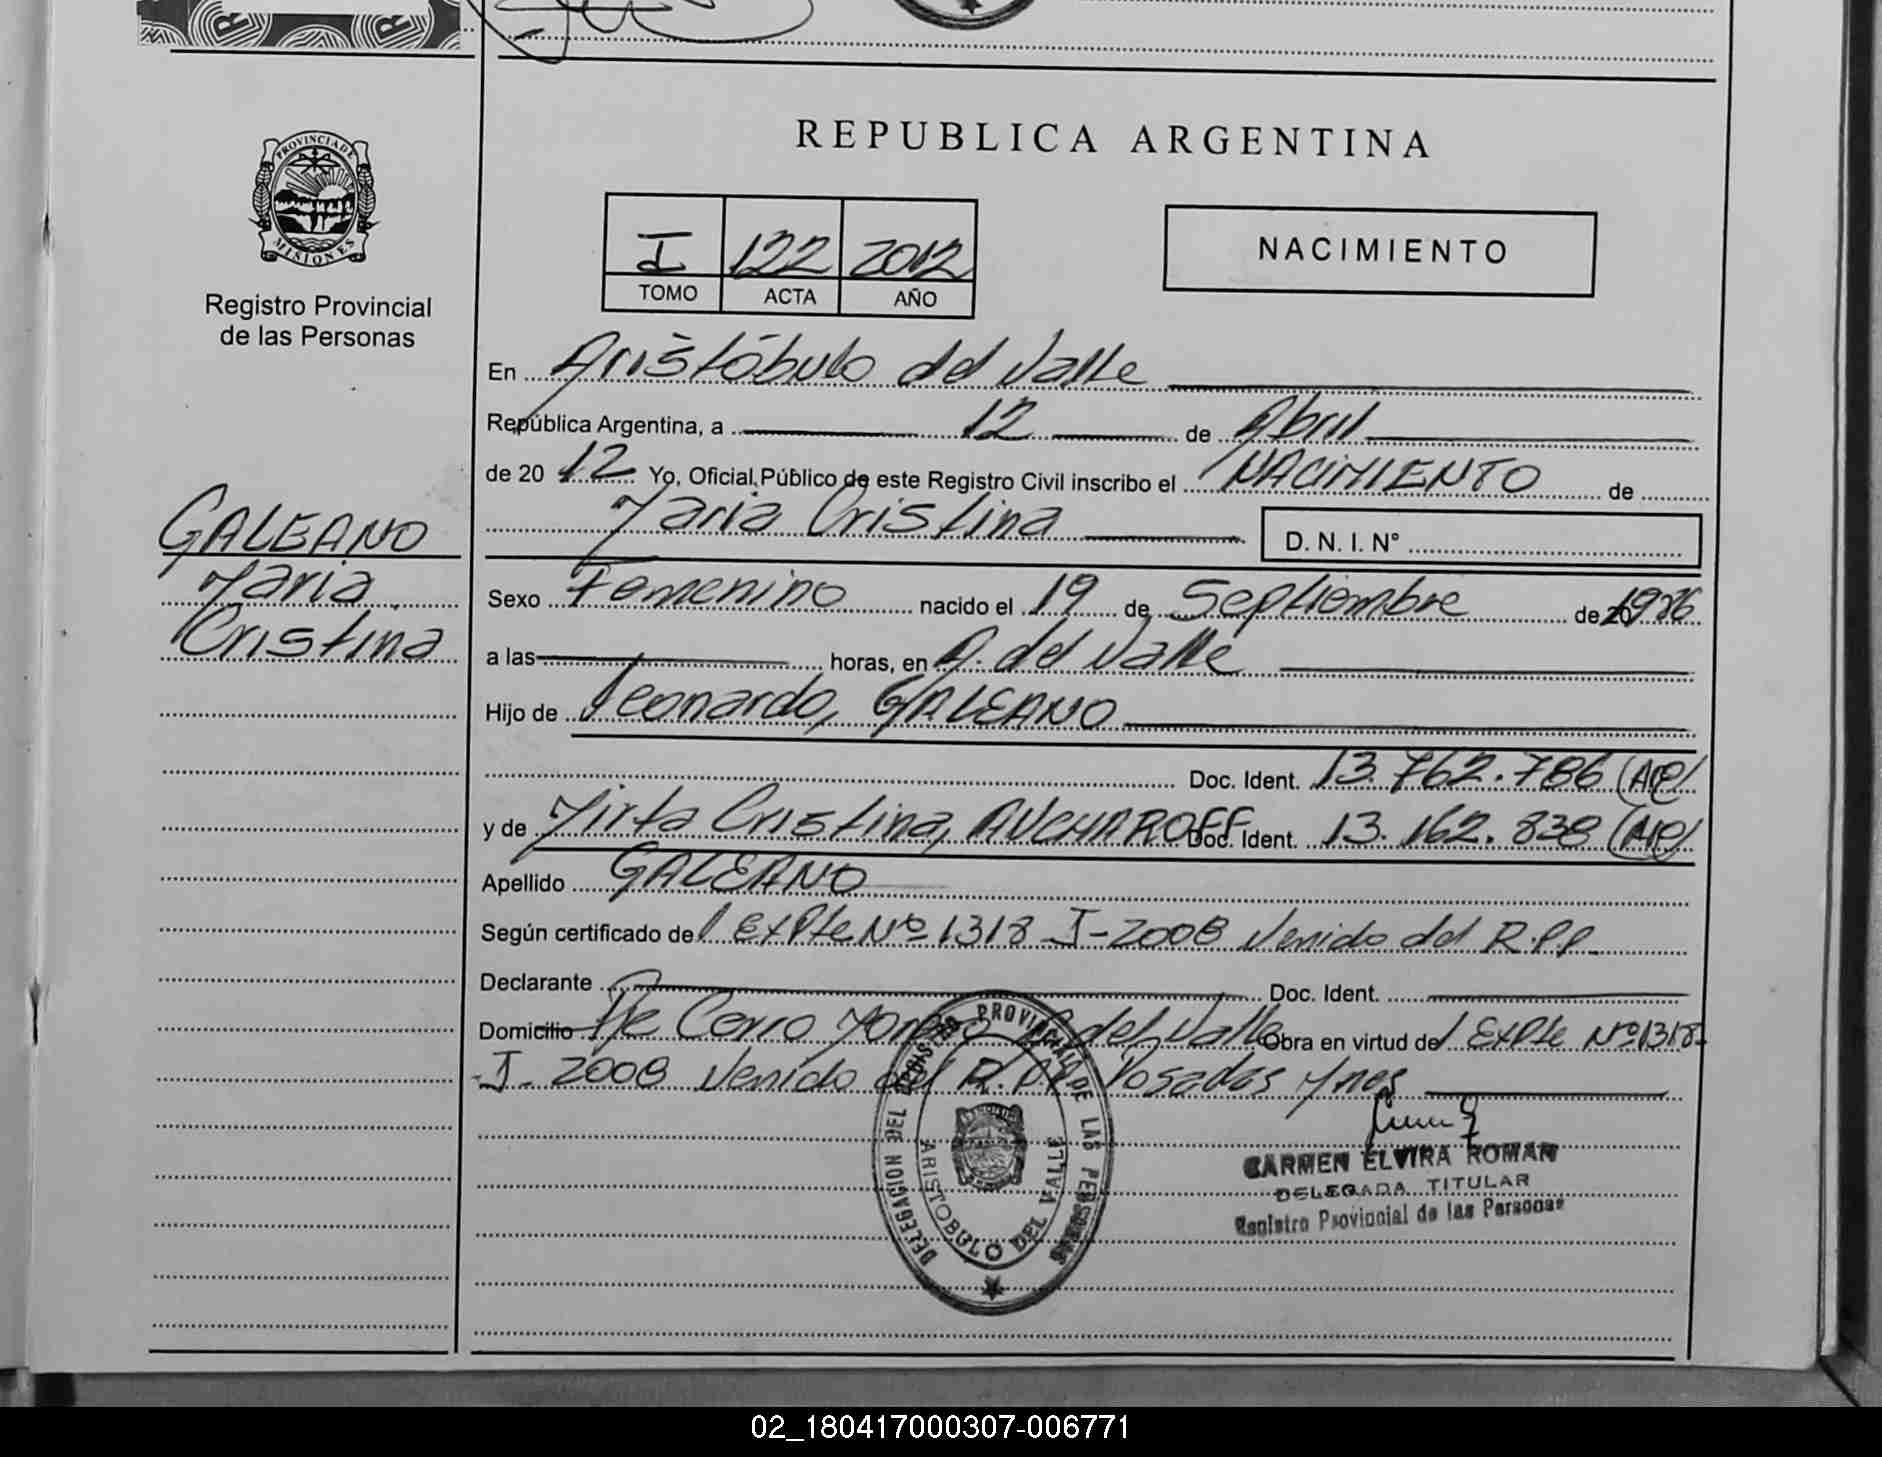 PROVINCIA DE
MISIONES
Registro Provincial
de las Personas
GALEANO
Maria
Cristina
REPUBLICA ARGENTINA
I 122 2012
TOMO ACTA AÑO
NACIMIENTO
En Aristóbulo del Valle
República Argentina, a 12 de Abril
de 20 12 Yo, Oficial Público de este Registro Civil inscribo el NACIMIENTO de
Maria Cristina D. N. I. N°
Sexo Femenino nacido el 19 de Septiembre de 20 1986
a las horas, en A. del Valle
Hijo de Leonardo, GALEANO
Doc. Ident. 13.762.786
y de Mirta Cristina, Doc. Ident. 13.162.838
Apellido GALEANO
Según certificado del Expte Nº 1318 I-2008 Venido del R.P.P.
Declarante Doc. Ident.
Domicilio Cerro A. del Valle Obra en virtud del Expte Nº 1318-
I-2008 Venido del R.P.P. Posadas Mnes
DELEGACION DEL REGISTRO PROVINCIAL DE LAS PERSONAS
ARISTOBULO DEL VALLE
CARMEN ELVIRA ROMAN
DELEGADA TITULAR
Registro Provincial de las Personas
02_180417000307-006771